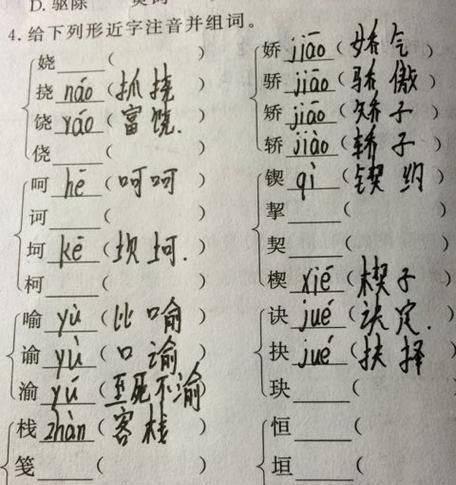 D. 驱除
4. 给下列形近字注音并组词。
娆____( )
挠 náo (抓挠)
饶 ráo (富饶.)
侥____( )
呵 hē (呵呵)
诃____( )
坷 kē (坝坷.)
柯____( )
喻 yù (比喻)
谕 yù (口谕)
渝 yú (至死不渝)
栈 zhàn (客栈)
笺____( )
娇 jiāo (娇气)
骄 jiāo (骄傲)
矫 jiāo (矫子)
轿 jiào (轿子)
锲 qì (锲约)
挈____( )
契____( )
楔 xiē (楔子)
诀 jué (诀定.)
抉 jué (抉择)
玦____( )
恒____( )
垣____( )